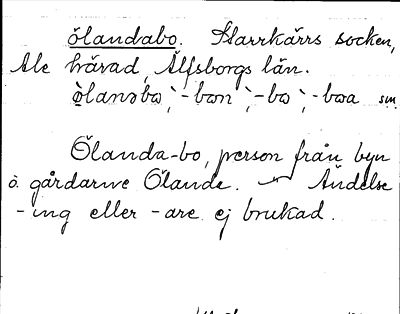 ölandabo. Starrkärrs socken,
Ale härad, Älfsborgs län.
ö̀lanəbɷ, -bɷn, -bɷ, -bɷa sm.
Ölanda-bo, person från byn
o. gårdarne Ölande. — Ändelse
-ing eller -are ej brukad.